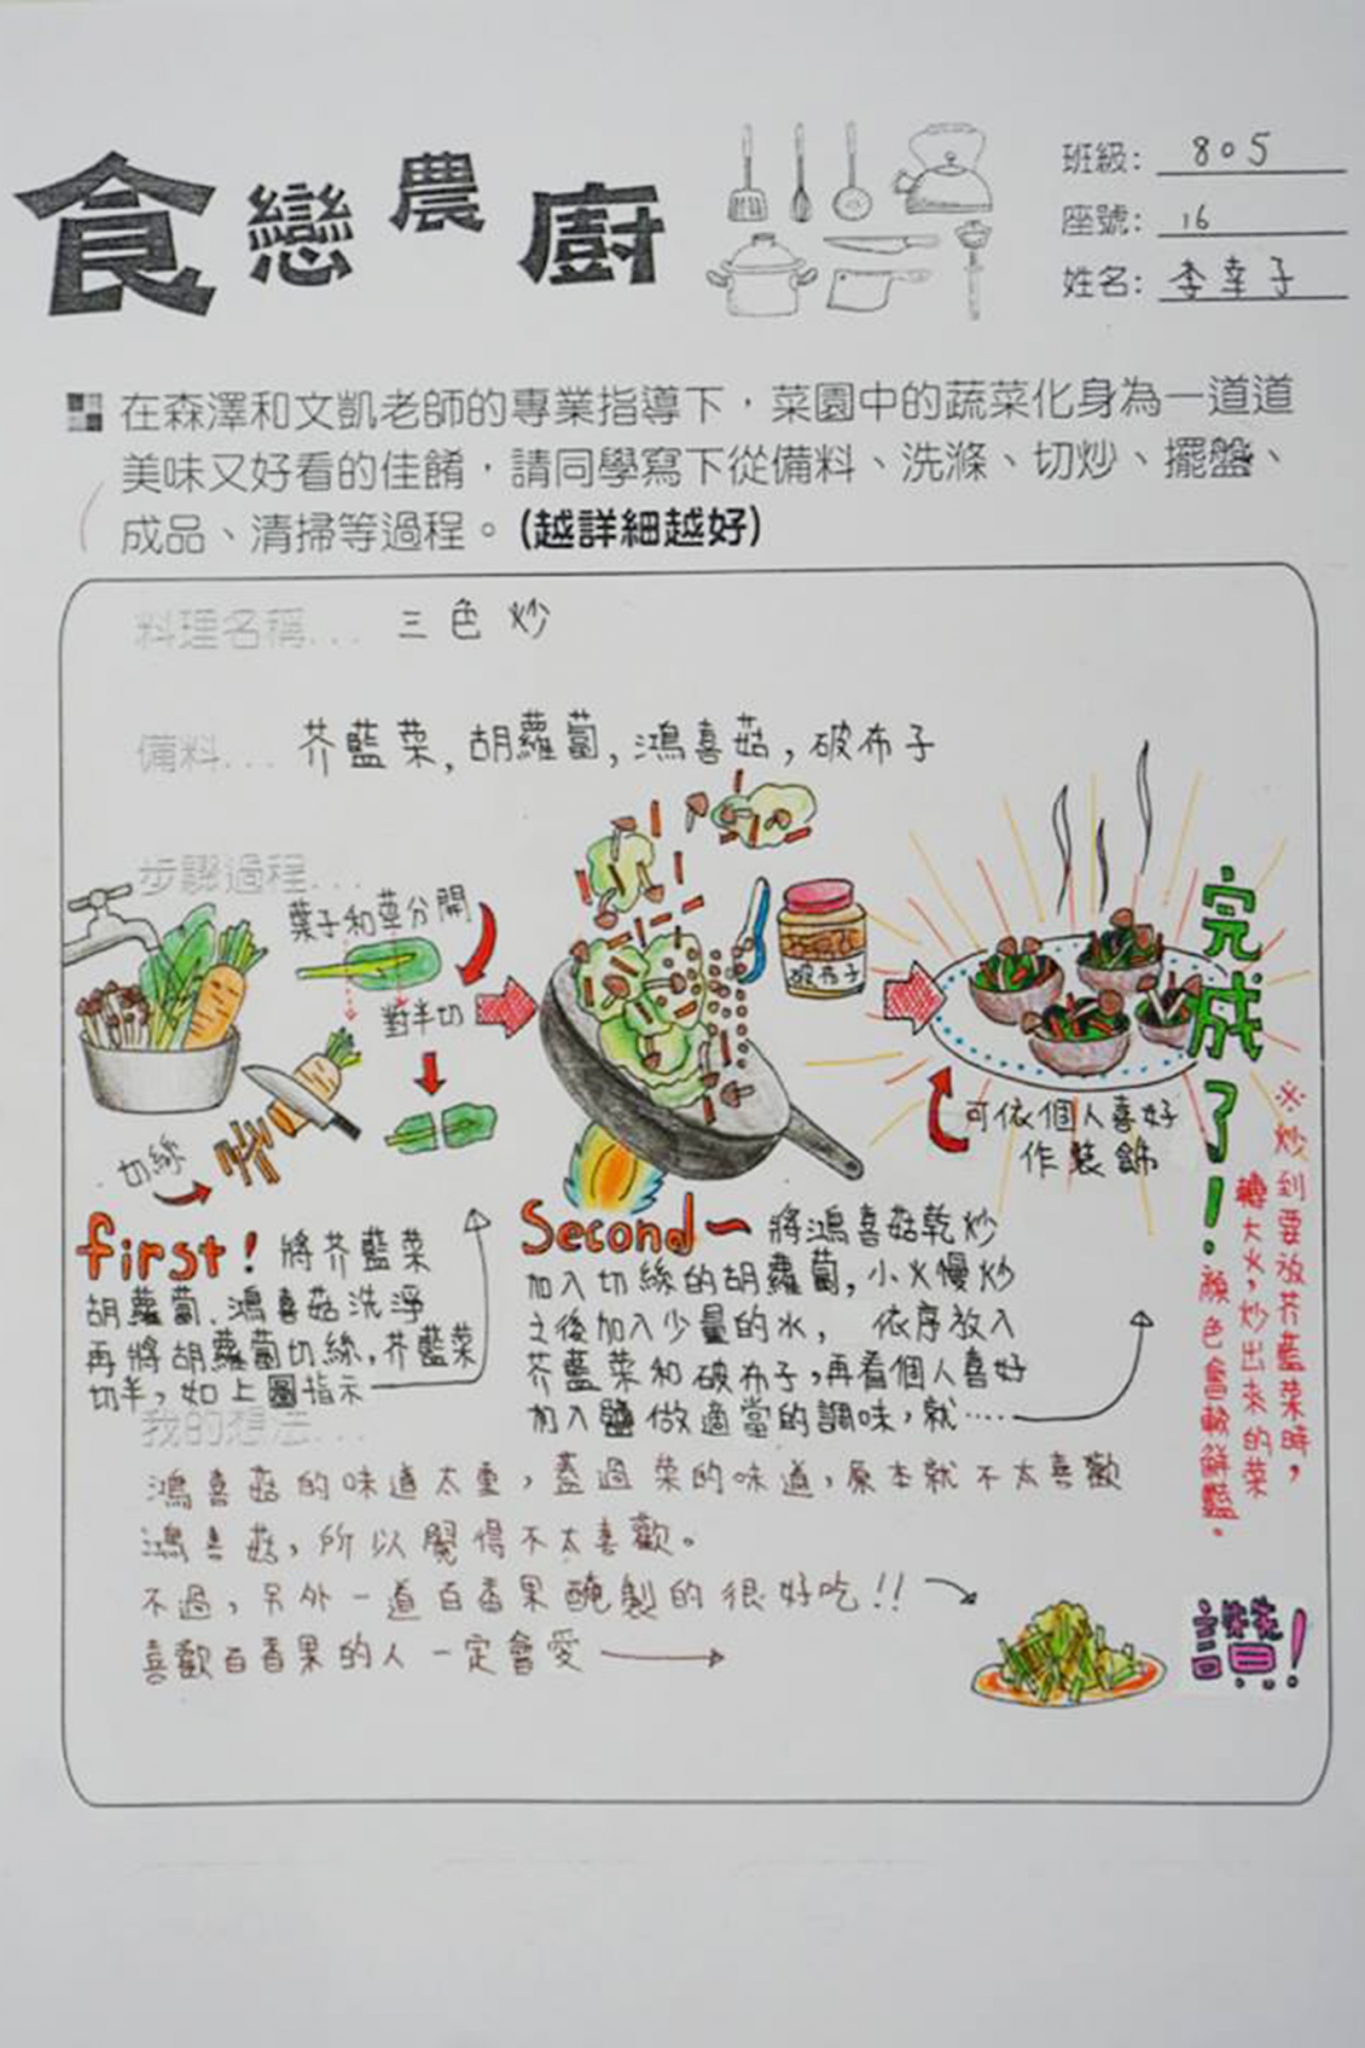 食戀農廚
班級: 805
座號: 16
姓名: 李幸子
在森澤和文凱老師的專業指導下，菜園中的蔬菜化身為一道道
美味又好看的佳餚，請同學寫下從備料、洗滌、切炒、擺盤、
成品、清掃等過程。(越詳細越好)
料理名稱... 三色炒
備料... 芥藍菜,胡蘿蔔,鴻喜菇,破布子
步驟過程...
葉子和莖分開
對半切
切絲
破布子
可依個人喜好
作裝飾
完成了!
first! 將芥藍菜
胡蘿蔔、鴻喜菇洗淨
再將胡蘿蔔切絲,芥藍菜
切半,如上圖指示
Second~ 將鴻喜菇乾炒
加入切絲的胡蘿蔔,小火慢炒
之後加入少量的水, 依序放入
芥藍菜和破布子,再看個人喜好
加入鹽做適當的調味,就....
※炒到要放芥藍菜時,
轉大火,炒出來的菜
顏色會較鮮豔。
我的想法...
鴻喜菇的味道太重,蓋過菜的味道,原本就不太喜歡
鴻喜菇,所以覺得不太喜歡。
不過,另外一道百香果醃製的很好吃!!
喜歡百香果的人一定會愛
讚!